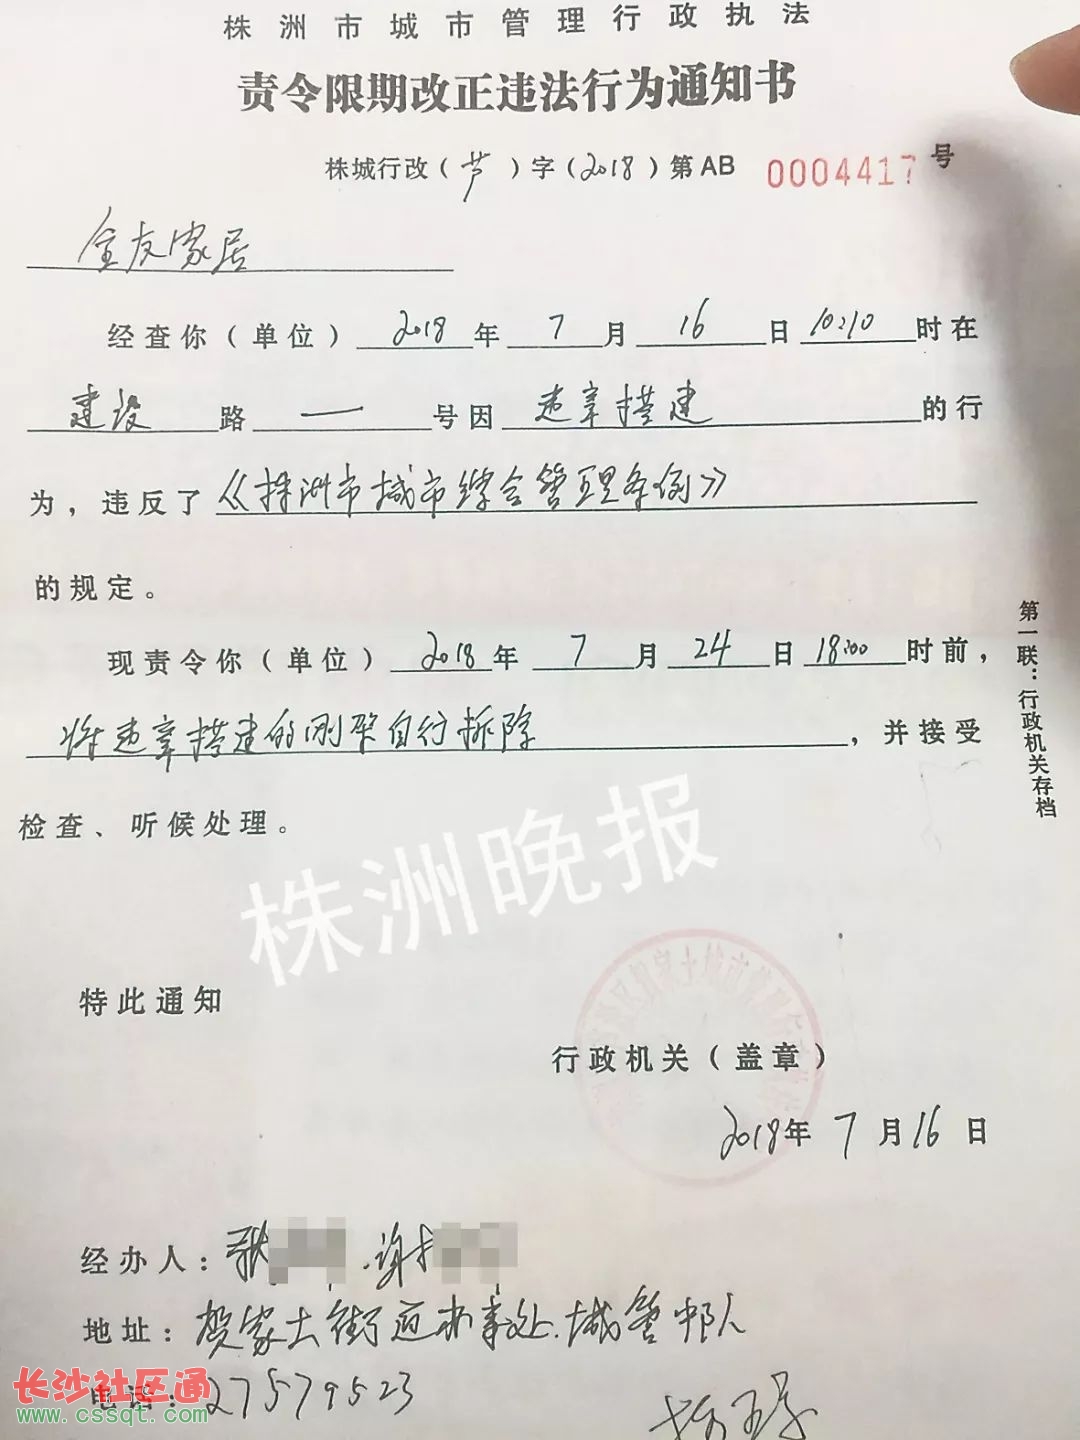 株洲市城市管理行政执法
责令限期改正违法行为通知书
株城行改（芦）字（2018）第AB 0004417 号
全友家居
经查你（单位）2018年7月16日10:10时在
建设路一号因违章搭建的行
为，违反了《株洲市城市综合管理条例》
的规定。
现责令你（单位）2018年7月24日18:00时前，
将违章搭建的刚架自行拆除，并接受
检查、听候处理。
第一联：行政机关存档
株洲晚报
特此通知
行政机关（盖章）
2018年7月16日
经办人：耿 .谢
地址：贺家土街道办事处.城管中队
电话：27579523
长沙社区通
www.cssqt.com